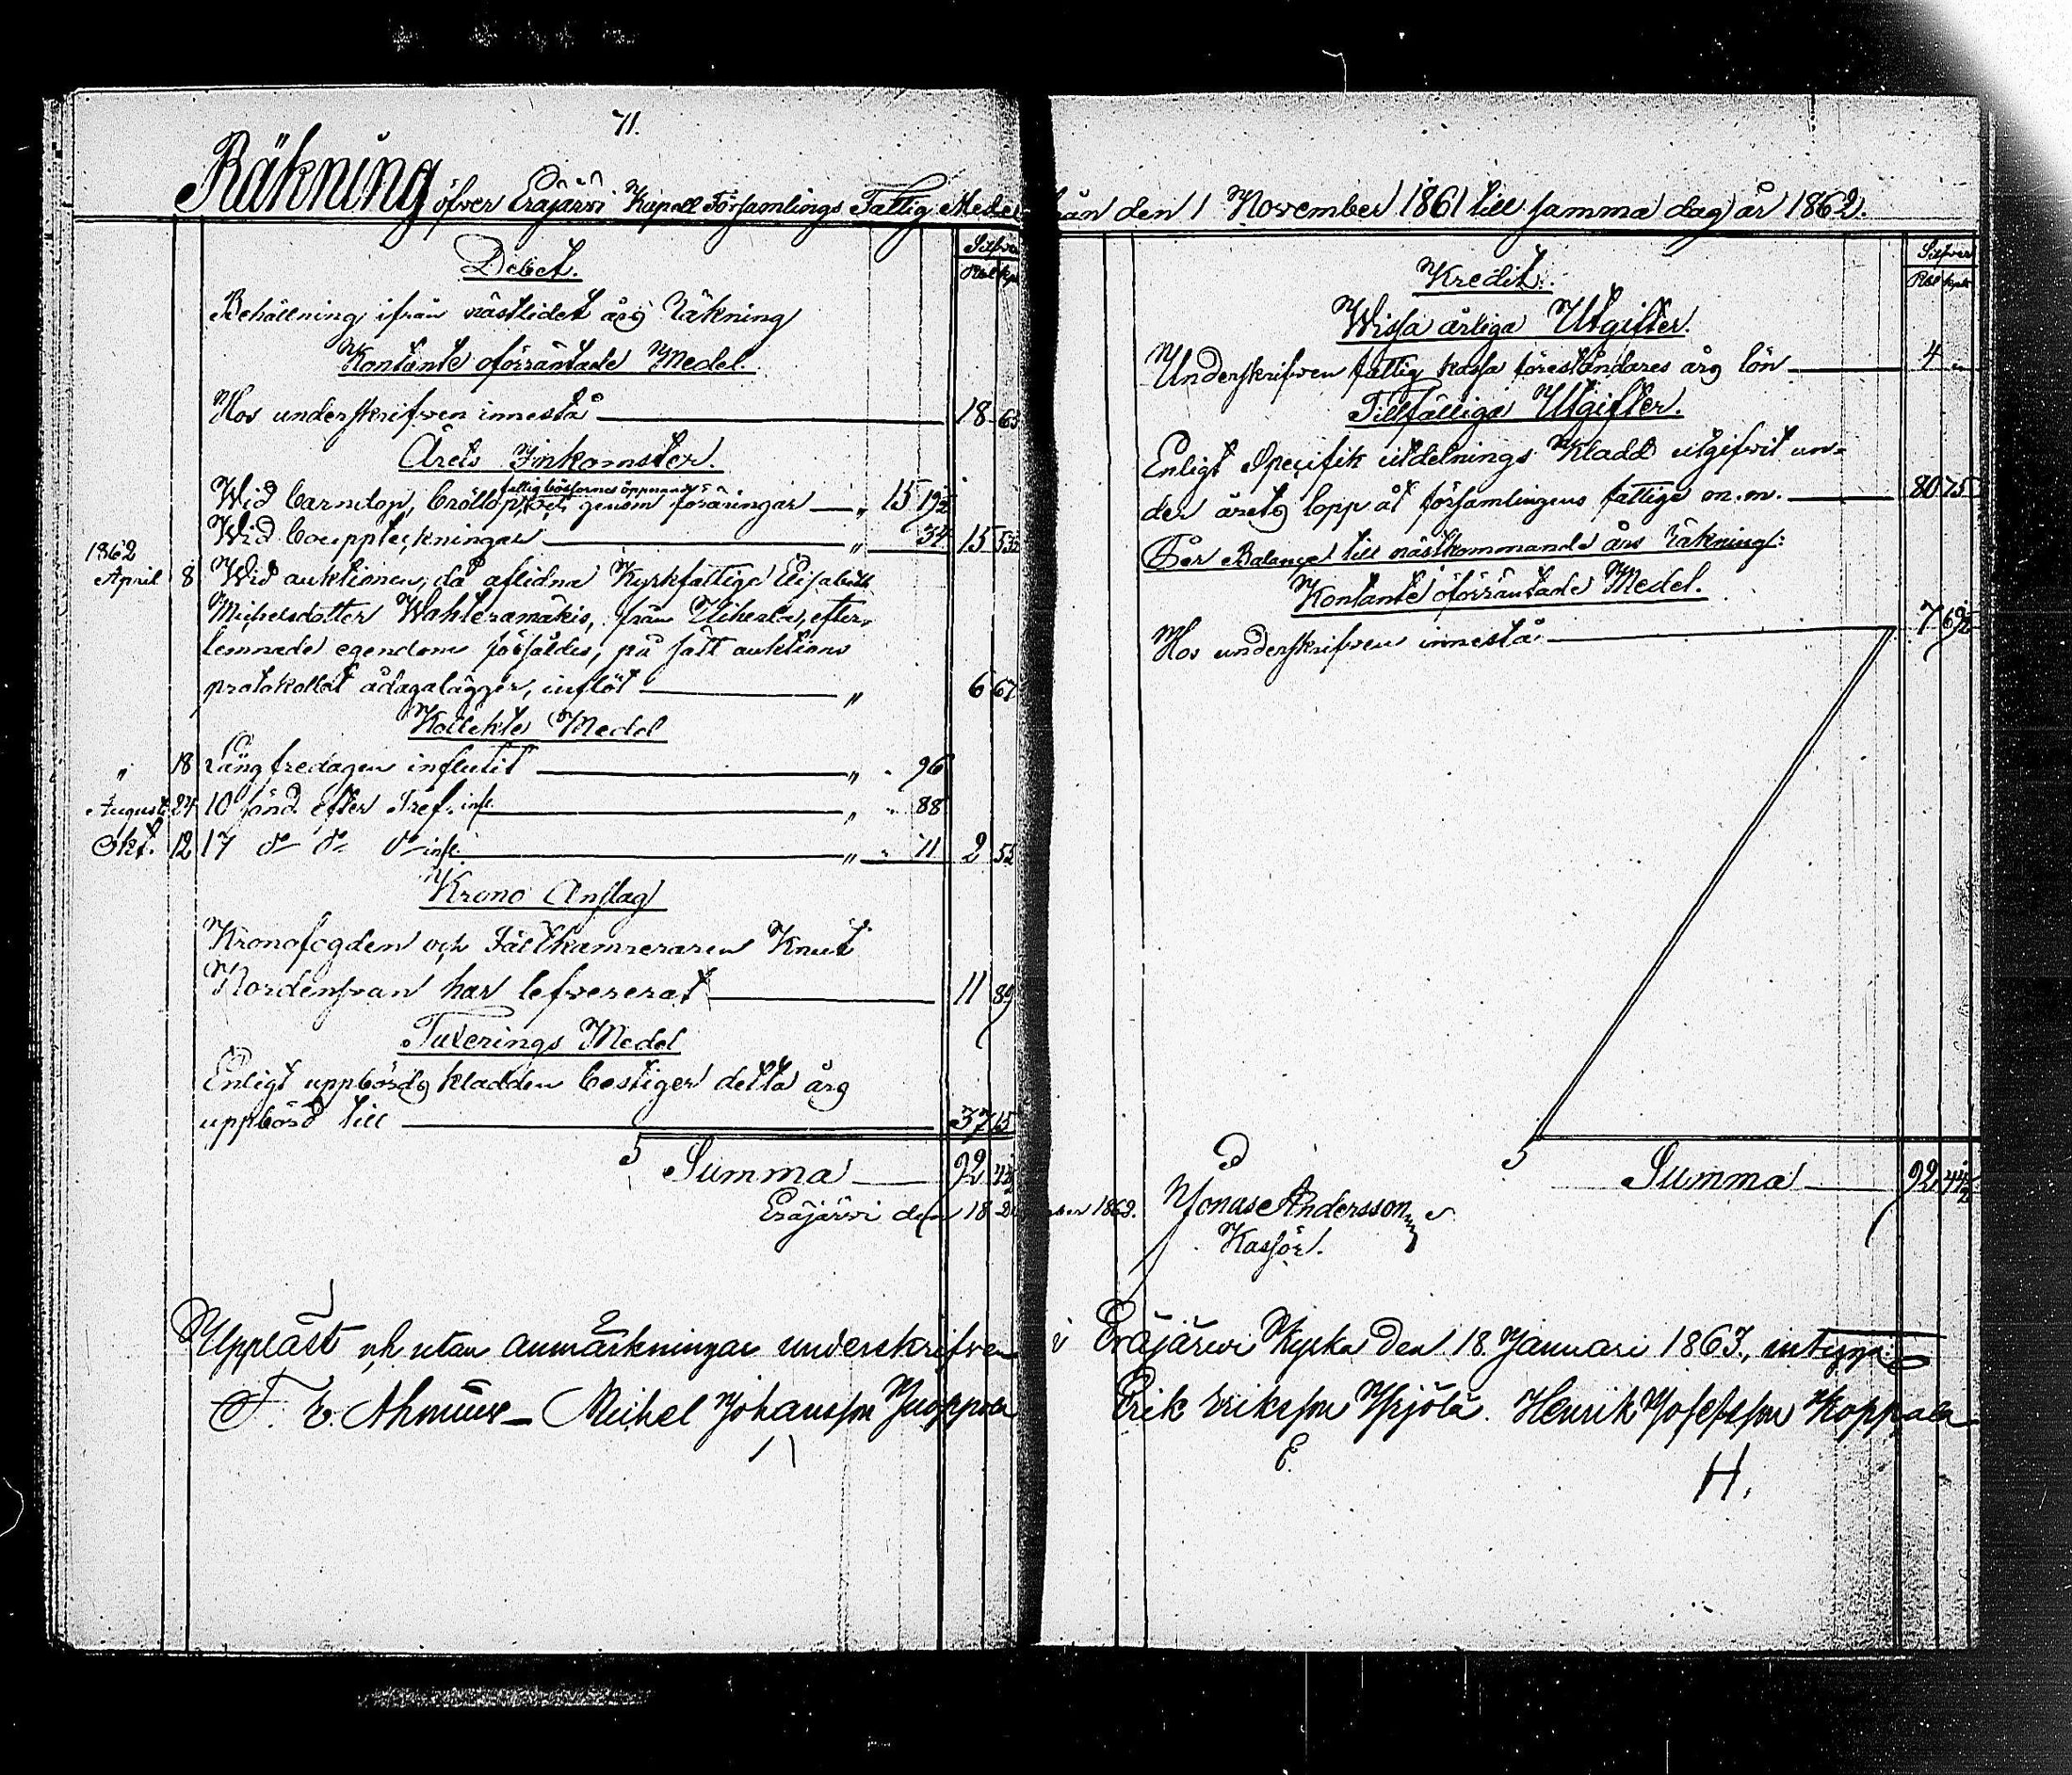 71.
Räkning öfver Eräjärvi Kapell Församlings Fattig Medel från den 1 November 1861 till samma dag år 1862.
Silfver
Debet.
Rbl kpk
Behållning ifrån nästlidet års Räkning
Kontante oförräntade Medel.
Hos underskrifven innestå 18 65
Årets Inkomster.
fattigbössornes öppnande
Wid barndop, bröllop, och genom föräringar " 15 19½
Wid bouppteckningar " 34 15 53½
1862
April 8 Wid auktionen, då aflidna Kyrkfattiga Elisabeth
Michelsdotter Wahteramäkis, från Uiherla, efter-
lemnade egendom försåldes, på sätt auktions
protokollet ådagalägger, inflöt " 6 67
Kollekte Medel
" 18 Långfredagen influtit " " 96
Augusti 24 10 sönd. efter Tref. infl. " " 88
Okt. 12 17 do do do infl. " " 71 2 55
Krono Anslag
Kronofogden och Fältkamreraren Knut
Nordensvan har lefvererat 11 89
Taxerings Medel
Enligt uppbörds kladden bestiger detta års
uppbörd till 37 15
Summa 92 44½
Eräjärvi den 18 December 1862.
Silfver
Kredit.
Rbl kpk
Wissa årliga Utgifter.
Underskrifven fattig kassa föreståndares års lön 4 "
Tillfälliga Utgifter.
Enligt Specifik utdelnings Kladd utgifvit un-
der årets lopp åt församlingens fattige m.m. 80 75
För Balance till nästkommande års räkning:
Kontante oförräntade Medel.
Hos underskrifven innestå 7 69½
Summa 92 44½
Jonas Andersson
Kassör.
Uppläst och utan anmärkningar underskrifven i Eräjärvi Kyrka den 18 Januari 1863, intyga:
F. E. Ahnuus Michel Johansson Juoppola Erik Eriksson Yrjölä. Henrik Josefsson Koppala
E.
H.